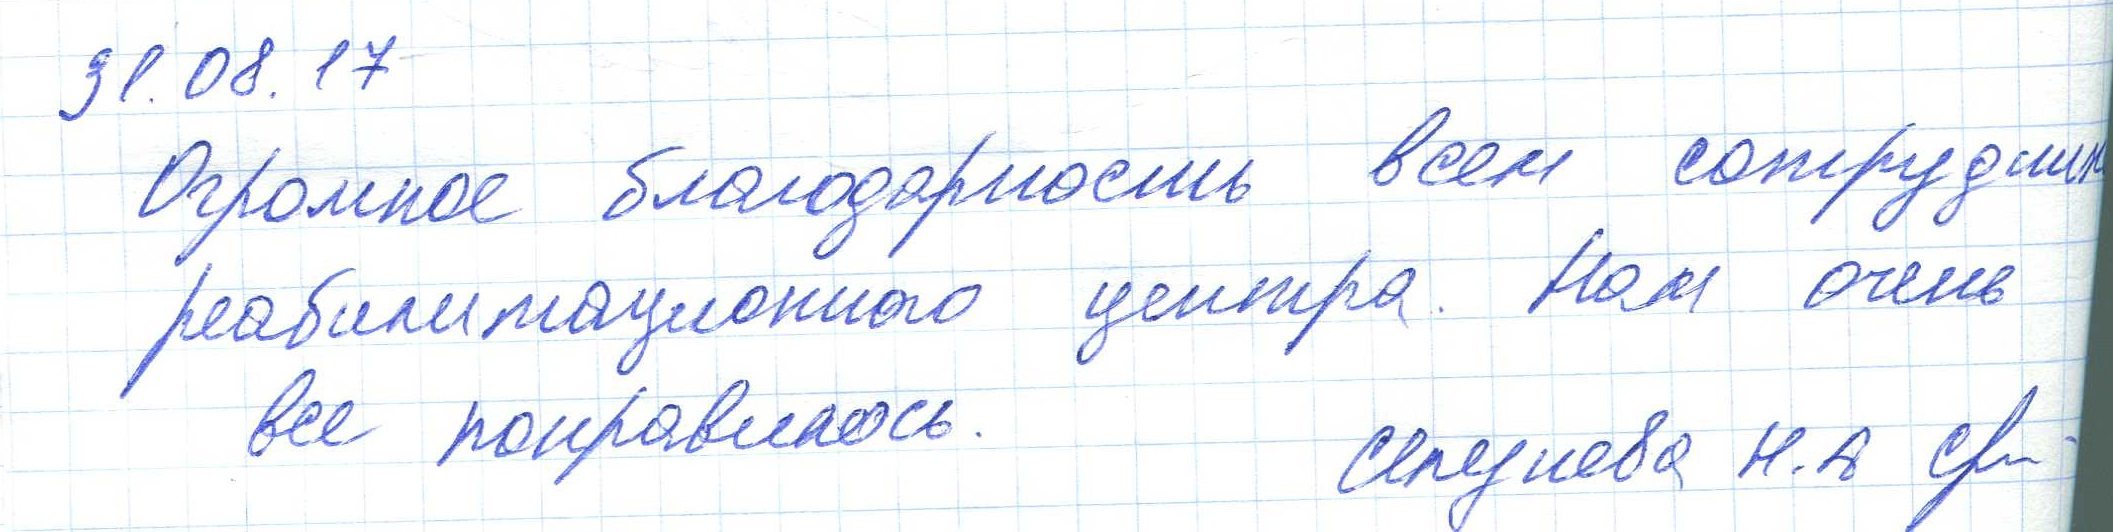 31.08.17
Огромное благодарность всем сотрудник
реабилитационного центра. Нам очень
все понравилось.
Н.А